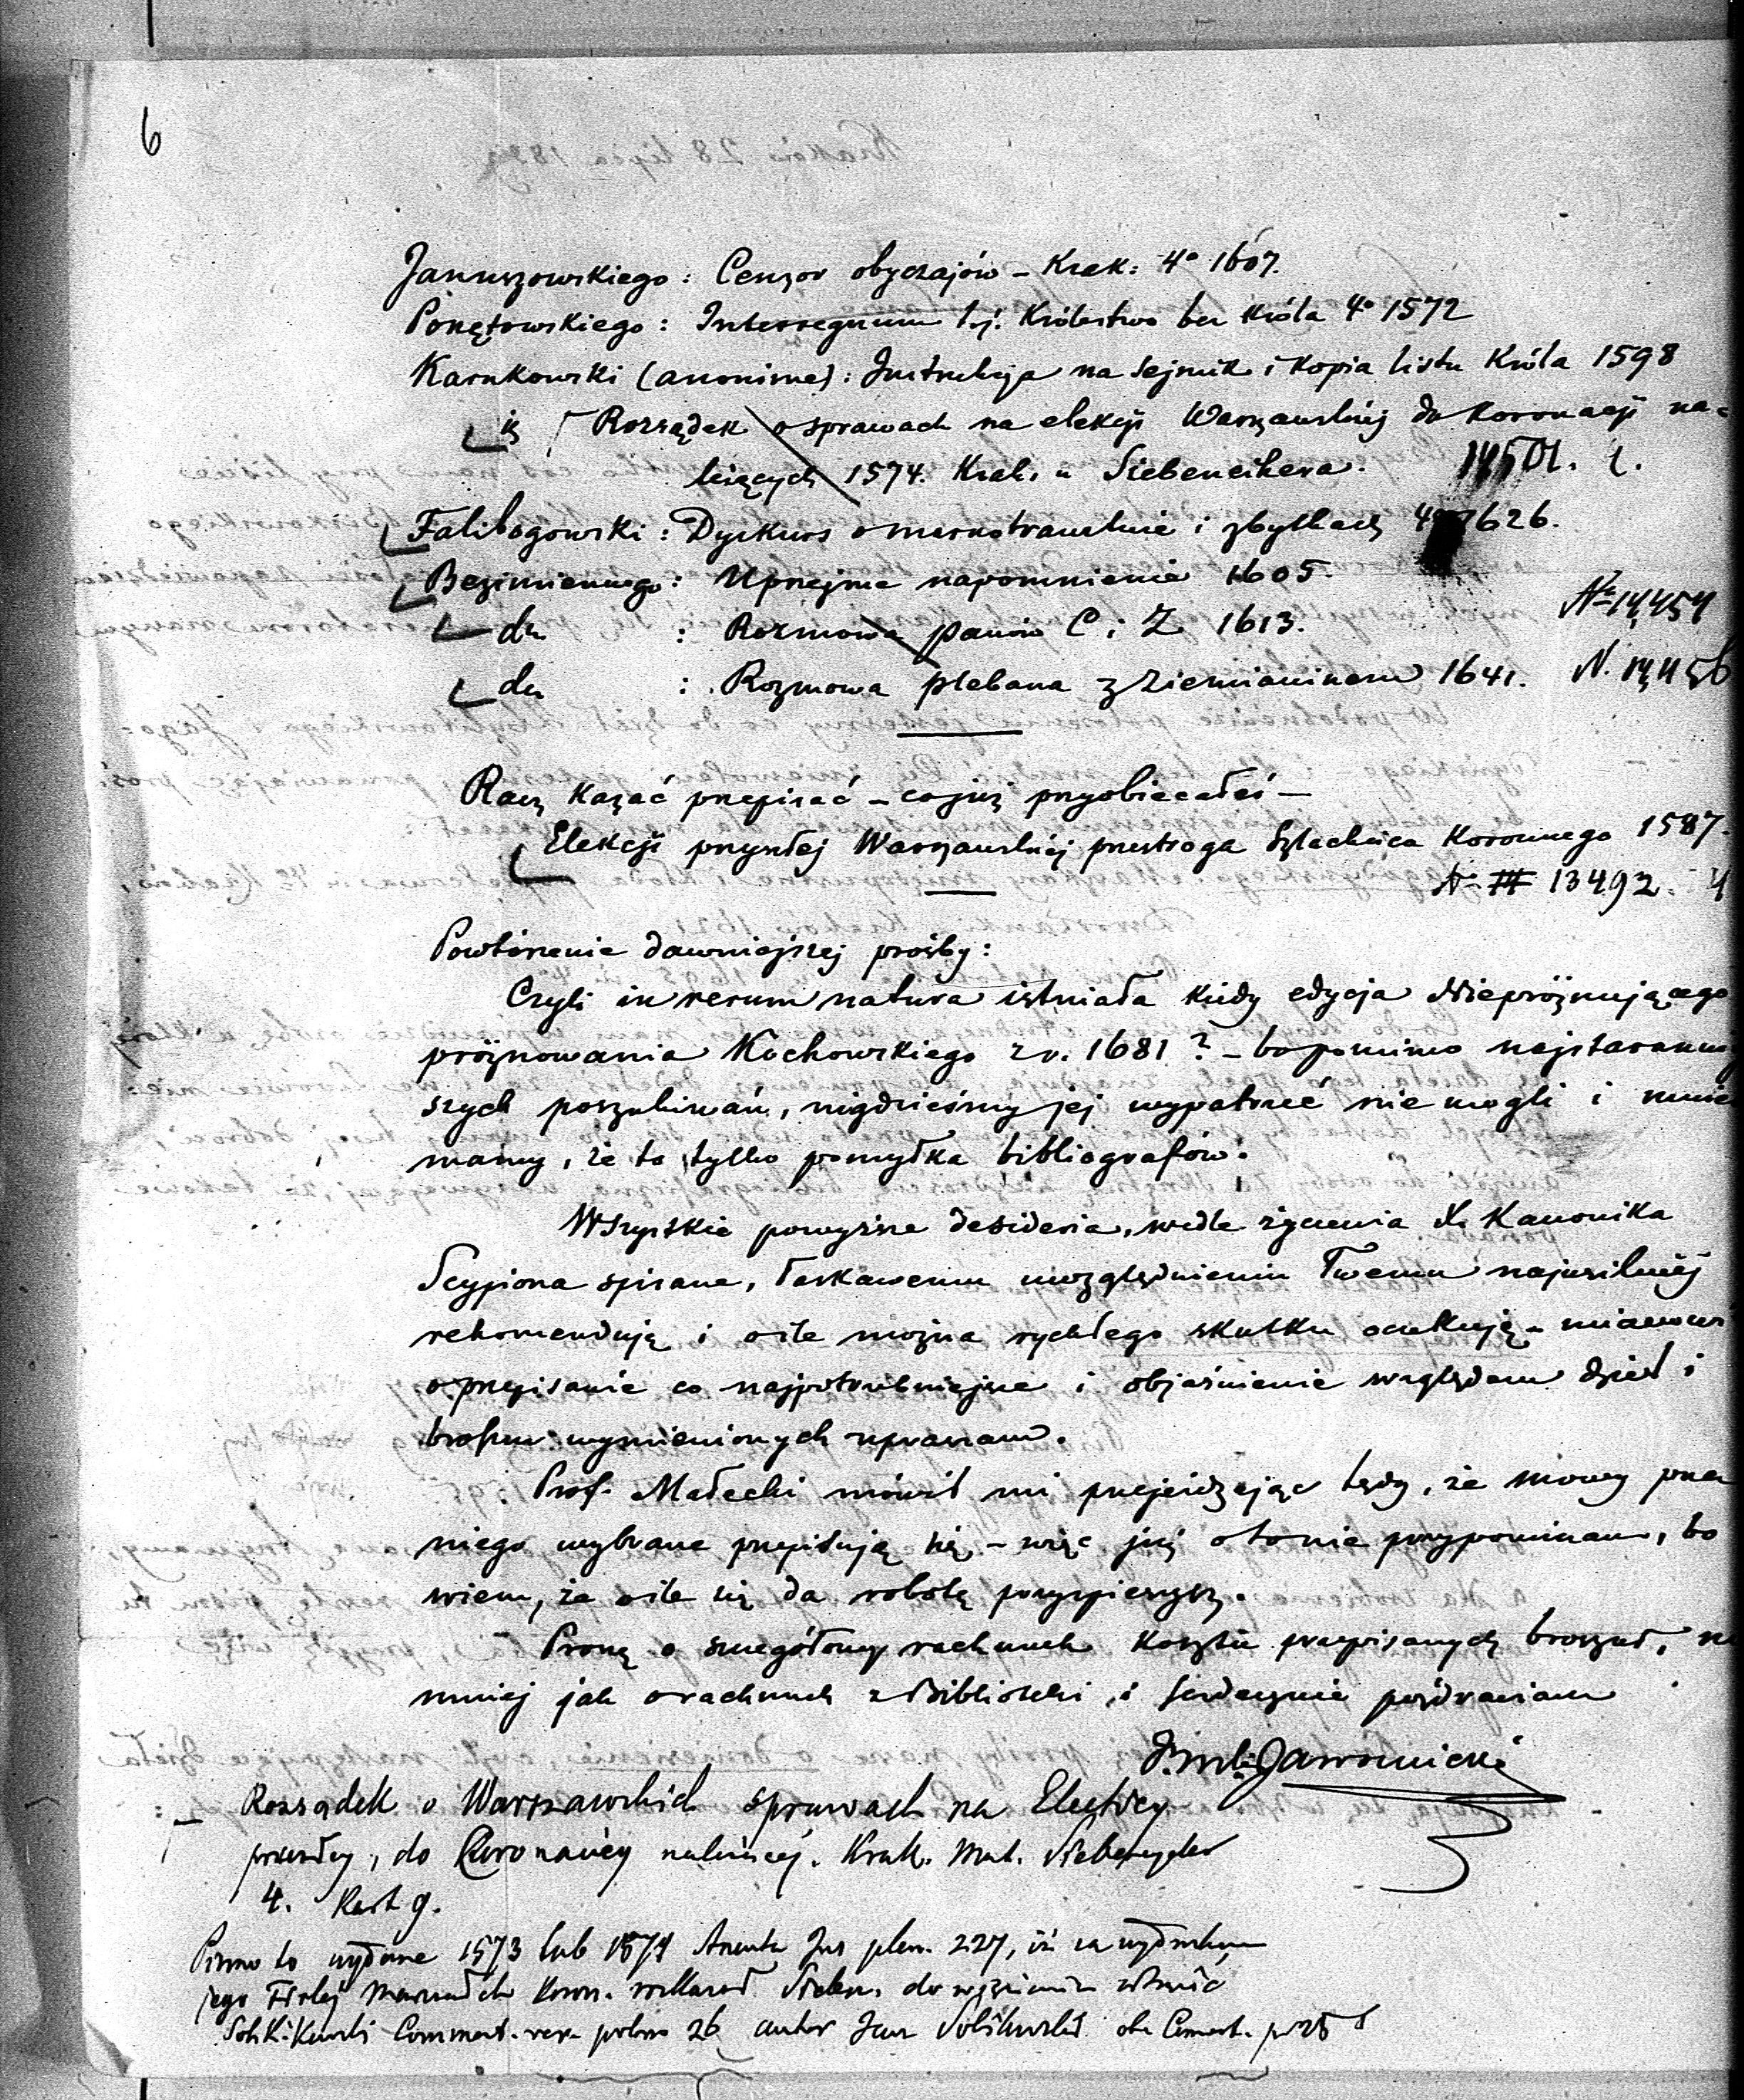 6
Januszowskiego: Cenzor obyczajów – Krak: 4° 1607.
Ponętowskiego: Interregnum tj. Królestwo bez Króla 4° 1572
Karnkowski (anonime): Instrukcja na sejmik i kopia listu Króla 1598
Rozsądek o sprawach na elekcji Warszawskiej do koronacji na-
leżących 1574. Krak. u Siebeneichera.
Falibogowski: Dyskurs o marnotrawstwie i zbytkach 4° 1626.
Bezimiennego: Uprzejme napomnienie 1605.
do : Rozmowa panów C i Z 1613. N° 14454
do : Rozmowa plebana z Ziemianinem 1641. N. 14456
Racz kazać przepisać – co już przyobiecałeś –
Elekcji przyszłej Warszawskiej przestroga Szlachcica Koronnego 1587.
13492. 4
Powtórzenie dawniejszej prośby:
Czyli in rerum natura istniała kiedy edycja Niepróżnującego
próżnowania Kochowskiego z r. 1681? – bo pomimo najstaranniej
szych poszukiwań, nigdzieśmy jej wypatrzeć nie mogli i mnie
mamy, że to tylko pomyłka bibliografów.
Wszystkie powyższe desideria, wedle życzenia X. Kanonika
Scypiona spisane, łaskawemu uwzględnieniu Twemu najusilniej
rekomendują i o ile można rychłego skutku oczekują – mianowi
o przepisanie co najpotrzebniejsze i objaśnienie względem dzieł i
broszur wymienionych upraszam.
Prof. Małecki mówił mi przejeżdżając tędy, że mowy przez
niego wybrane przepisują się – więc już o to nie przypominam, bo
wiem, że o ile się da robotę przyspieszysz.
Proszę o szczegółowy rachunek kosztu przepisanych broszur, nie
mniej jak o rachunek z Biblioteki i serdecznie pozdrawiam
Jawornicki
Rozsądek o Warszawskich sprawach na Electiey
przeszłey, do Coronaciey należącej. Krak. Mat. Siebeneycher
4. kart 9.
Pismo to wydane 1573 lub 1574 Jus plen. 227, iż za wydrukow
jego Firlej Marszałek Koron. Sieben. do więzienia
Comment. rer. polon 26 autor Jan Solikowski ob. Coment. p. 25